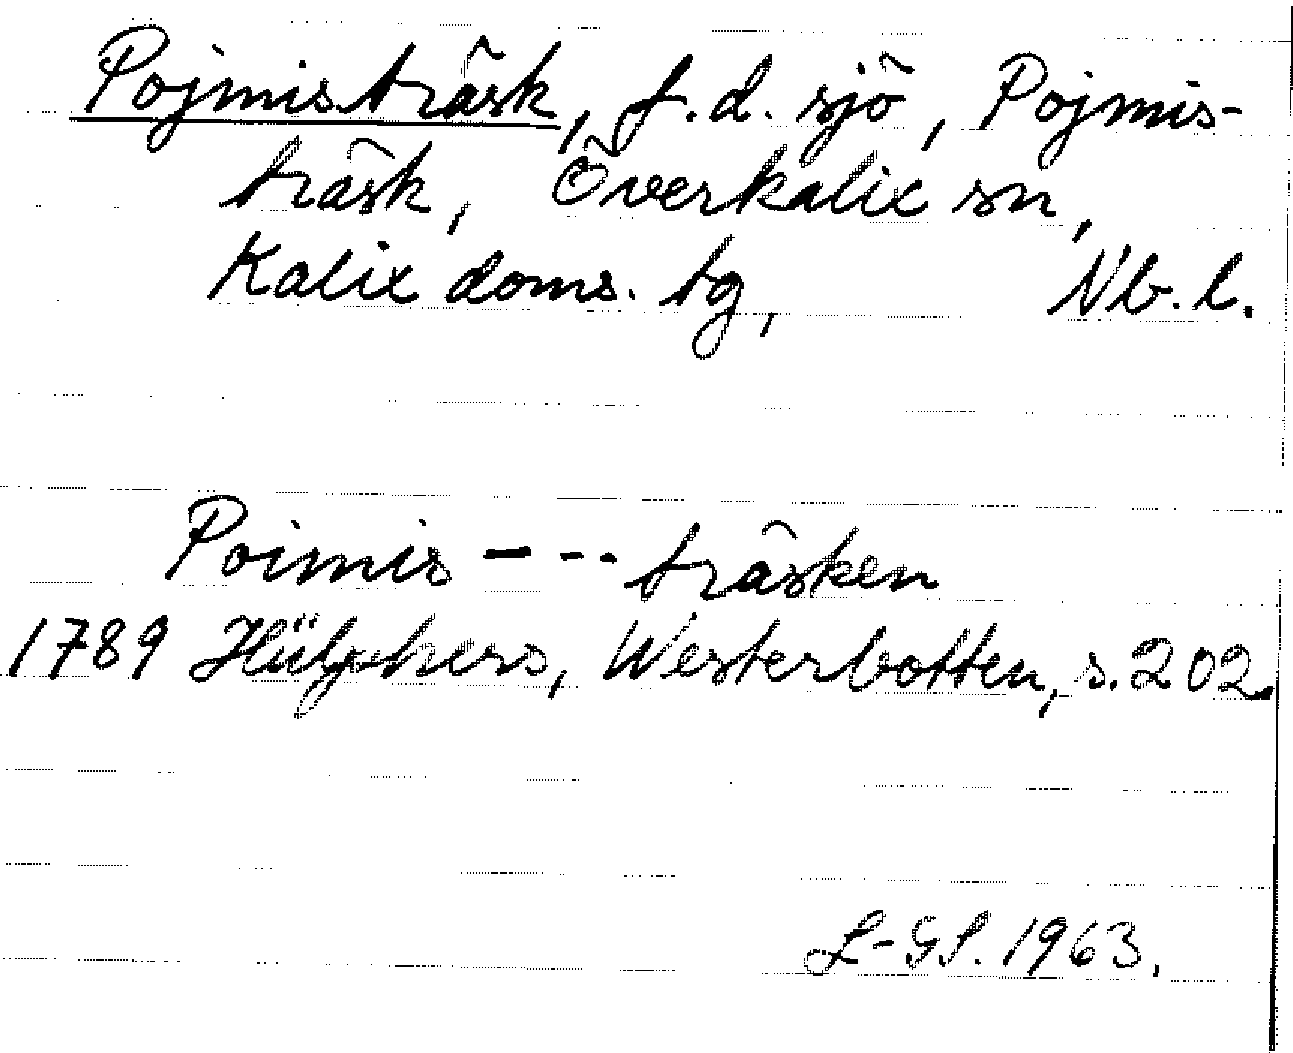 Pojmisträsk, f.d. sjö, Pojmis-
träsk, Överkalix sn,
Kalix doms. tg, Nb. l.
Poimis - - - träsken
1789 Hülphers, Westerbotten, s. 202.
L-GL. 1963.